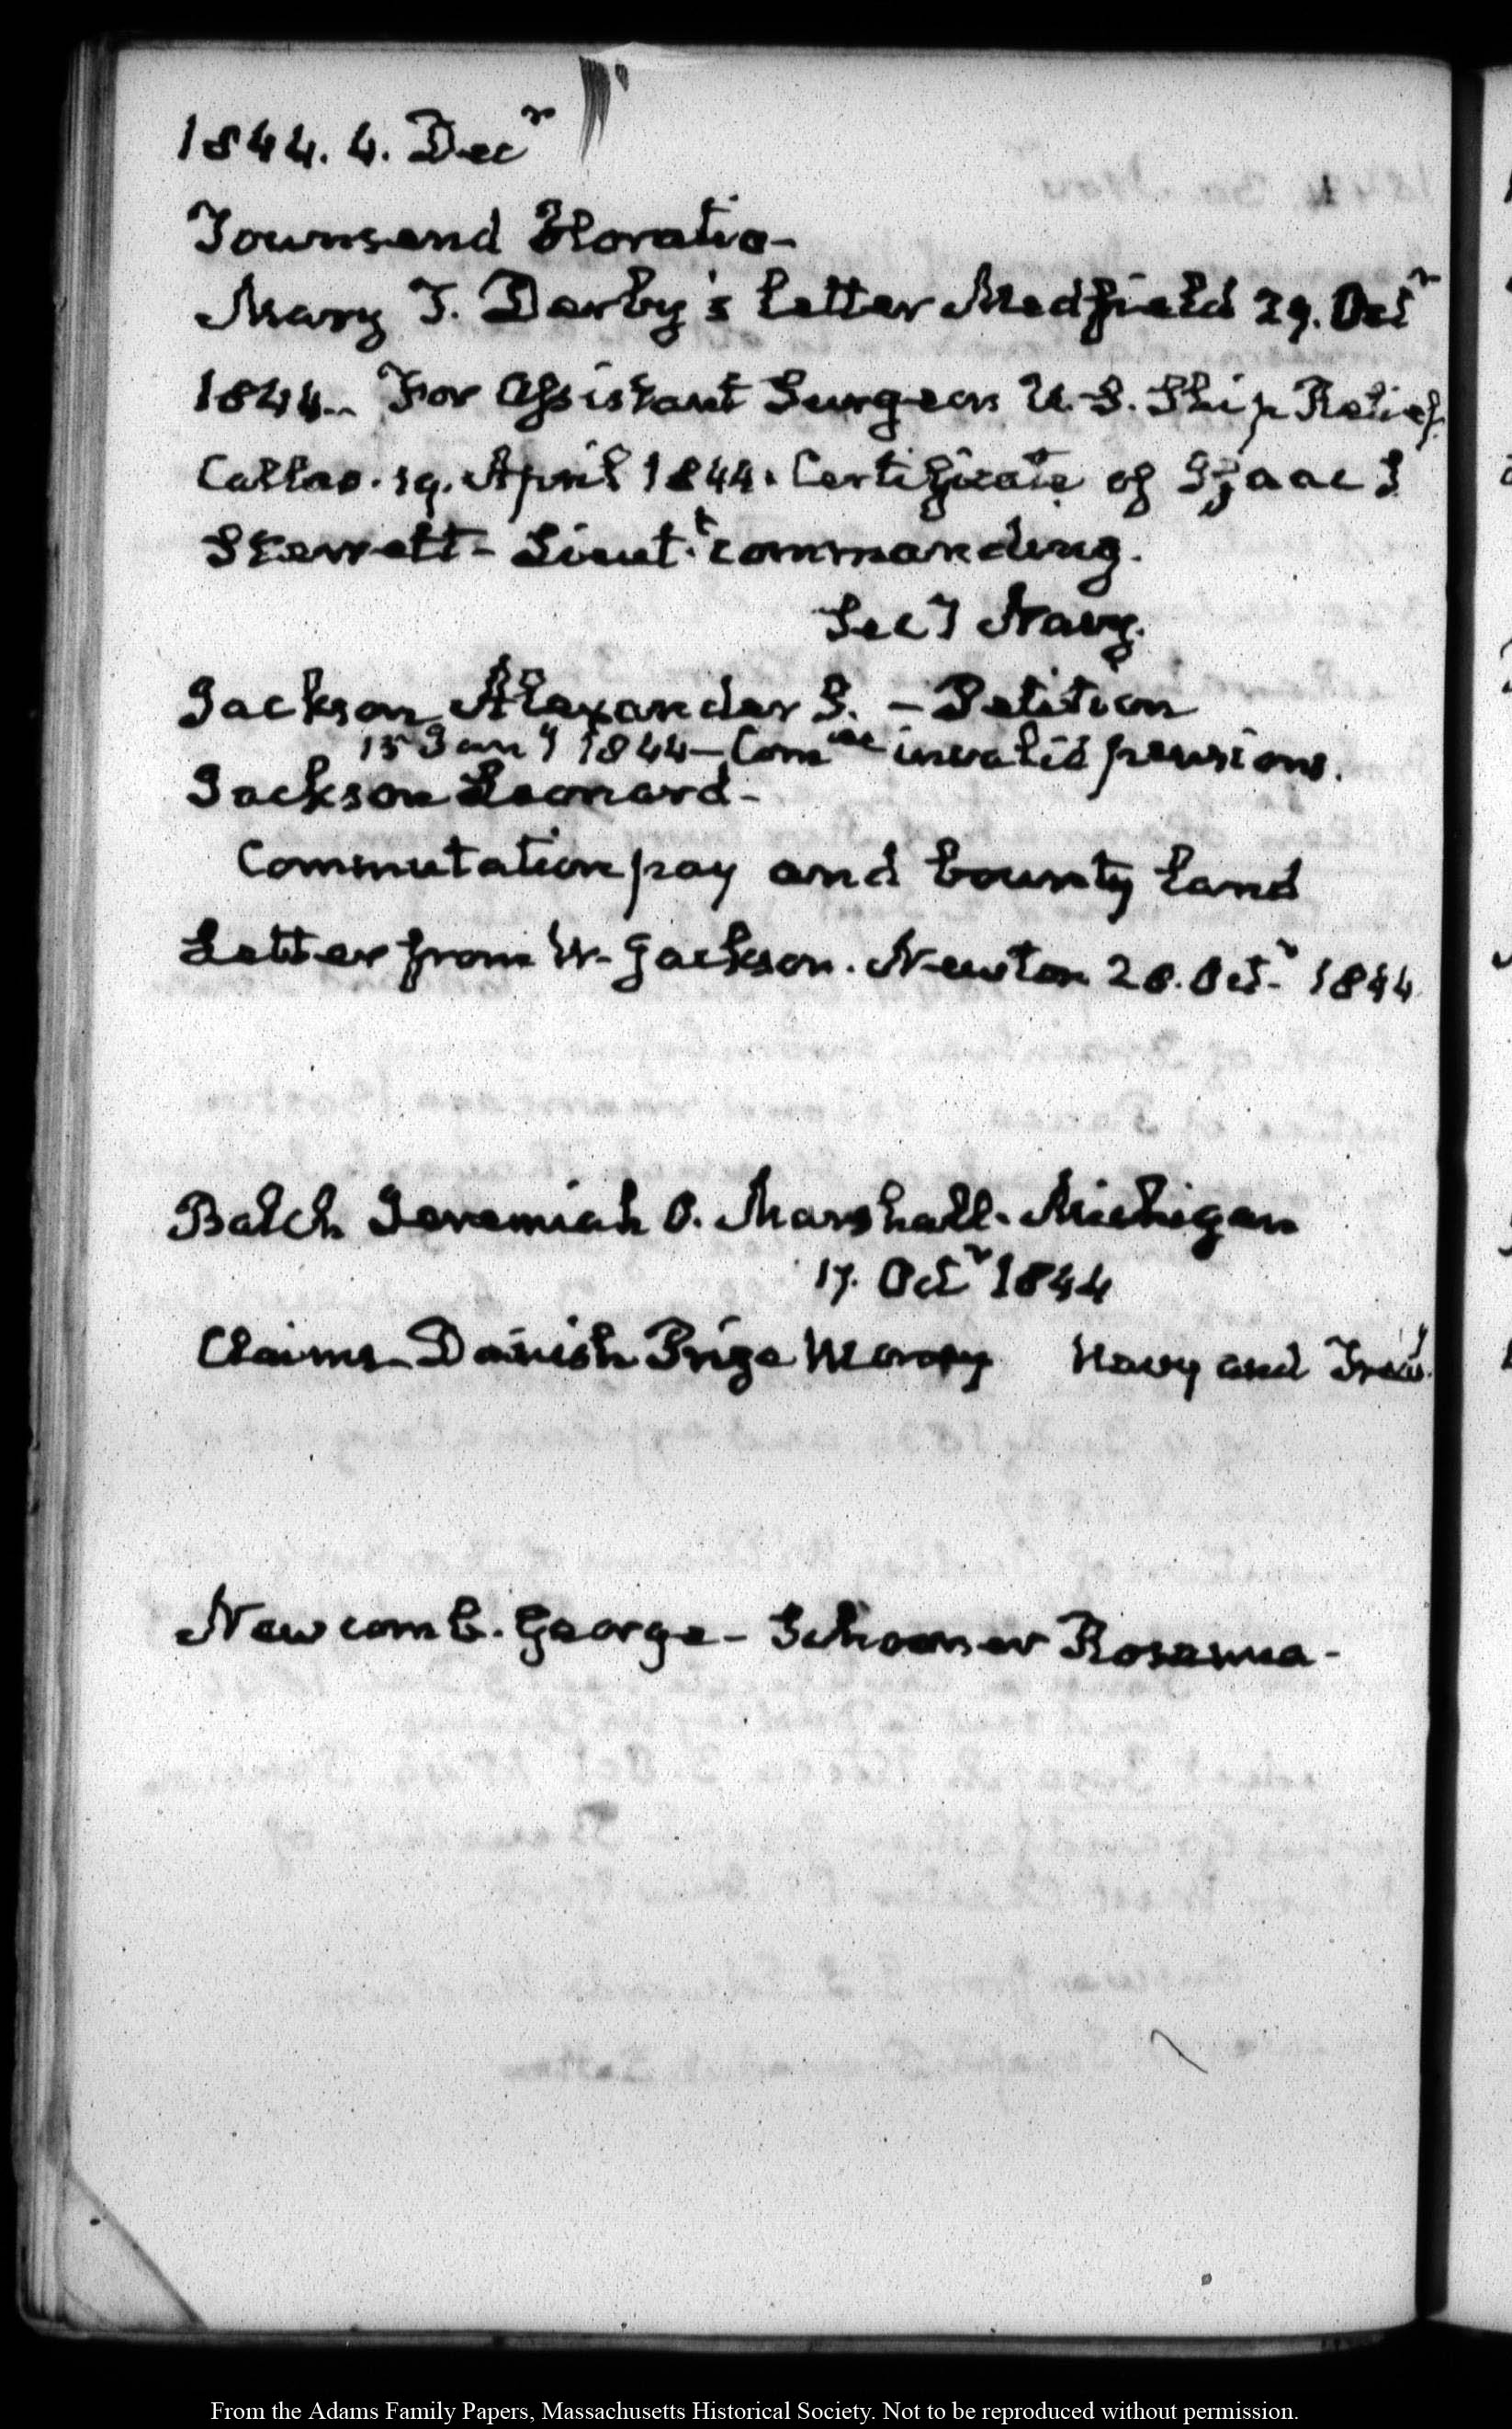 1844. 4. Decr
Townsend Horatio-
Mary T. Derby's letter Medfield 29. Octr
1844.. For Assistant Surgeon U.S. Ship Relief.
Callao. 19. April 1844. Certificate of Isaac S
Sterrett- Lieut.t commanding.
Secy Navy.
Jackson Alexander S. - Petition
15 Jany 1844- Comtee invalid pensions.
Jackson Leonard-
Commutation pay and bounty land
Letter from W. Jackson. Newton 28. Octr 1844
Balch Jeremiah O. Marshall. Michigan
17. Octr 1844
Claims- Danish Prize Money Navy and Treasy.
Newcomb. George- Schooner Rosanna-
From the Adams Family Papers, Massachusetts Historical Society. Not to be reproduced without permission.